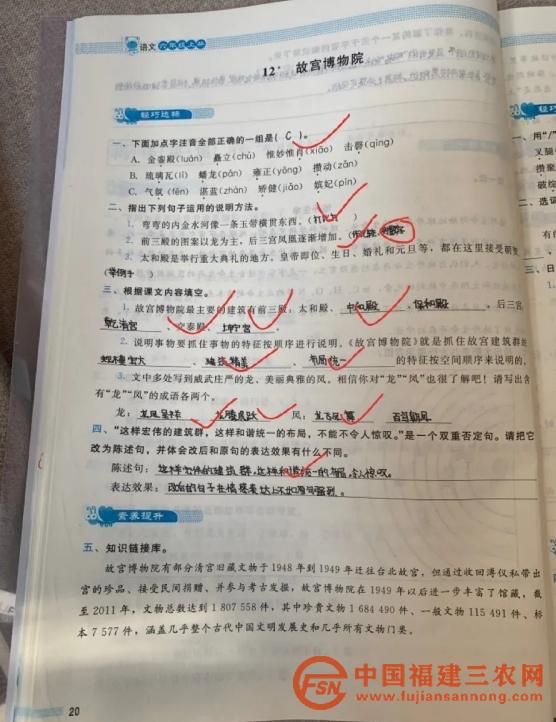 语文六年级上册
12* 故宫博物院
轻巧达标
一、下面加点字注音全部正确的一组是( C )。
A. 金銮殿(luán) 矗立(chù) 惟妙惟肖(xiāo) 击磬(qìng)
B. 琉璃瓦(lí) 蟠龙(pán) 雍正(yōng) 攒动(zǎn)
C. 气氛(fēn) 湛蓝(zhàn) 矫健(jiǎo) 嫔妃(pín)
二、指出下列句子运用的说明方法。
1. 弯弯的内金水河像一条玉带横贯东西。(打比方)
2. 前三殿的图案以龙为主,后三宫凤凰逐渐增加。
3. 太和殿是举行重大典礼的地方。皇帝即位、生日、婚礼和元旦等,都在这里接受朝贺。
(举例子)
三、根据课文内容填空。
1. 故宫博物院最主要的建筑有前三殿:太和殿、中和殿、保和殿,后三宫:
乾清宫、交泰殿、坤宁宫。
2. 说明事物要抓住事物的特征按顺序进行说明。《故宫博物院》就是抓住故宫建筑群的
规模宏大、建筑精美、布局统一的特征按空间顺序来说明的。
3. 文中多处写到威武庄严的龙、美丽典雅的凤。相信你对“龙”“凤”也很了解吧!请写出含
有“龙”“凤”的成语各两个。
龙:龙凤呈祥 龙腾虎跃 凤:龙飞凤舞 百鸟朝凤
四、“这样宏伟的建筑群,这样和谐统一的布局,不能不令人惊叹。”是一个双重否定句。请把它
改为陈述句,并体会改后和原句的表达效果有什么不同。
陈述句:这样宏伟的建筑群,这样和谐统一的布局,令人惊叹。
表达效果:改后的句子在情感表达上不如原句强烈。
素养提升
五、知识链接库。
故宫博物院有部分清宫旧藏文物于 1948 年到 1949 年迁往台北故宫,但通过收回溥仪私带出
宫的珍品、接受民间捐赠、并参与考古发掘,故宫博物院在 1949 年以后进一步丰富了馆藏,截
至 2011 年,文物总数达到 1 807 558 件,其中珍贵文物 1 684 490 件、一般文物 115 491 件、标
本 7 577 件,涵盖几乎整个古代中国文明发展史和几乎所有文物门类。
20
FSN 中国福建三农网
www.fujiansannong.com